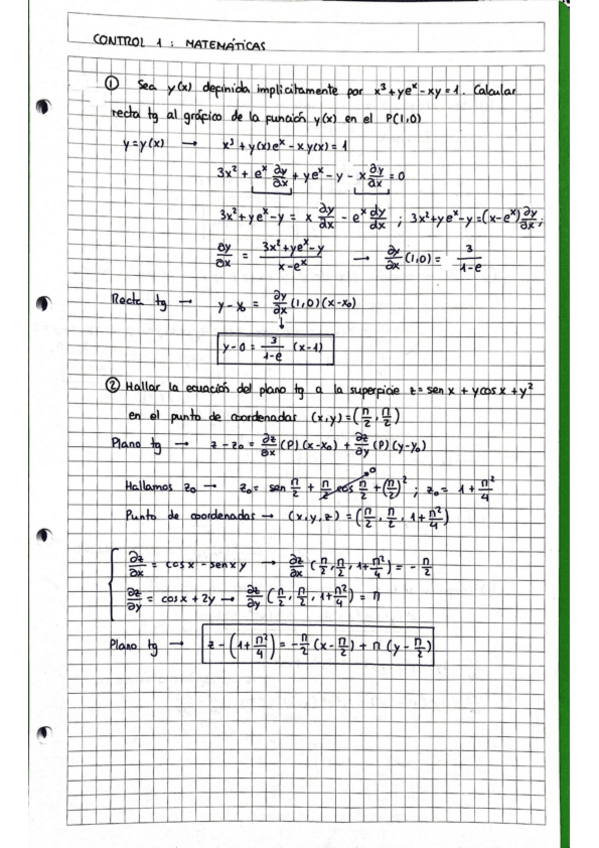 CONTROL 1 : MATEMÁTICAS
① Sea y(x) definida implícitamente por x³+yeˣ-xy=1. Calcular
recta tg al gráfico de la función y(x) en el P(1,0)
y=y(x) → x³+y(x)eˣ-xy(x)=1
3x² + eˣ ∂y/∂x + yeˣ - y - x ∂y/∂x = 0
3x²+yeˣ-y = x ∂y/dx - eˣ dy/dx ; 3x²+yeˣ-y=(x-eˣ) ∂y/∂x;
∂y/∂x = (3x²+yeˣ-y)/(x-eˣ) → ∂y/∂x (1,0) = 3/(1-e)
Recta tg → y-y₀ = ∂y/∂x (1,0)(x-x₀)
↓
y-0 = 3/(1-e) (x-1)
② Hallar la ecuación del plano tg a la superficie z= sen x + ycos x + y²
en el punto de coordenadas (x,y)=(π/2, π/2)
Plano tg → z-z₀ = ∂z/∂x (P)(x-x₀) + ∂z/∂y (P)(y-y₀)
Hallamos z₀ → z₀= sen π/2 + π/2 cos π/2 + (π/2)² ; z₀= 1 + π²/4
0
Punto de coordenadas → (x,y,z) = (π/2, π/2, 1+π²/4)
∂z/∂x = cosx - senx y → ∂z/∂x (π/2, π/2, 1+π²/4) = - π/2
∂z/∂y = cosx + 2y → ∂z/∂y (π/2, π/2, 1+π²/4) = π
Plano tg → z-(1+π²/4) = -π/2 (x-π/2) + π (y-π/2)